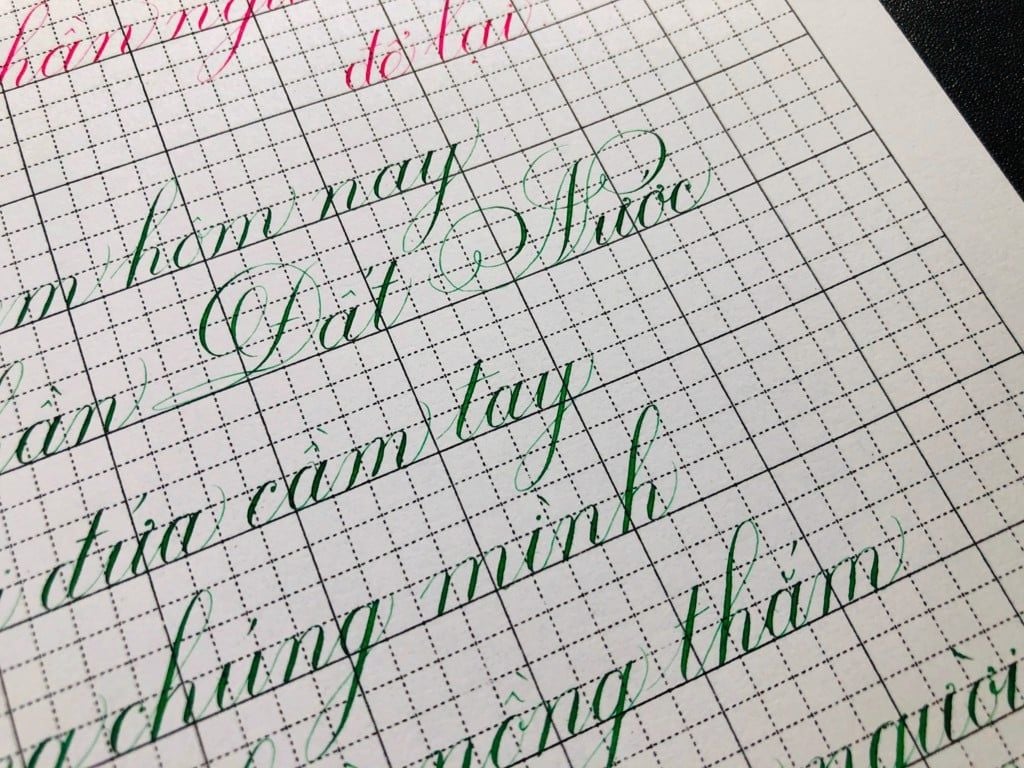 để lại
hôm nay
Đất Nước
đứa cầm tay
chúng mình
nồng thắm
người